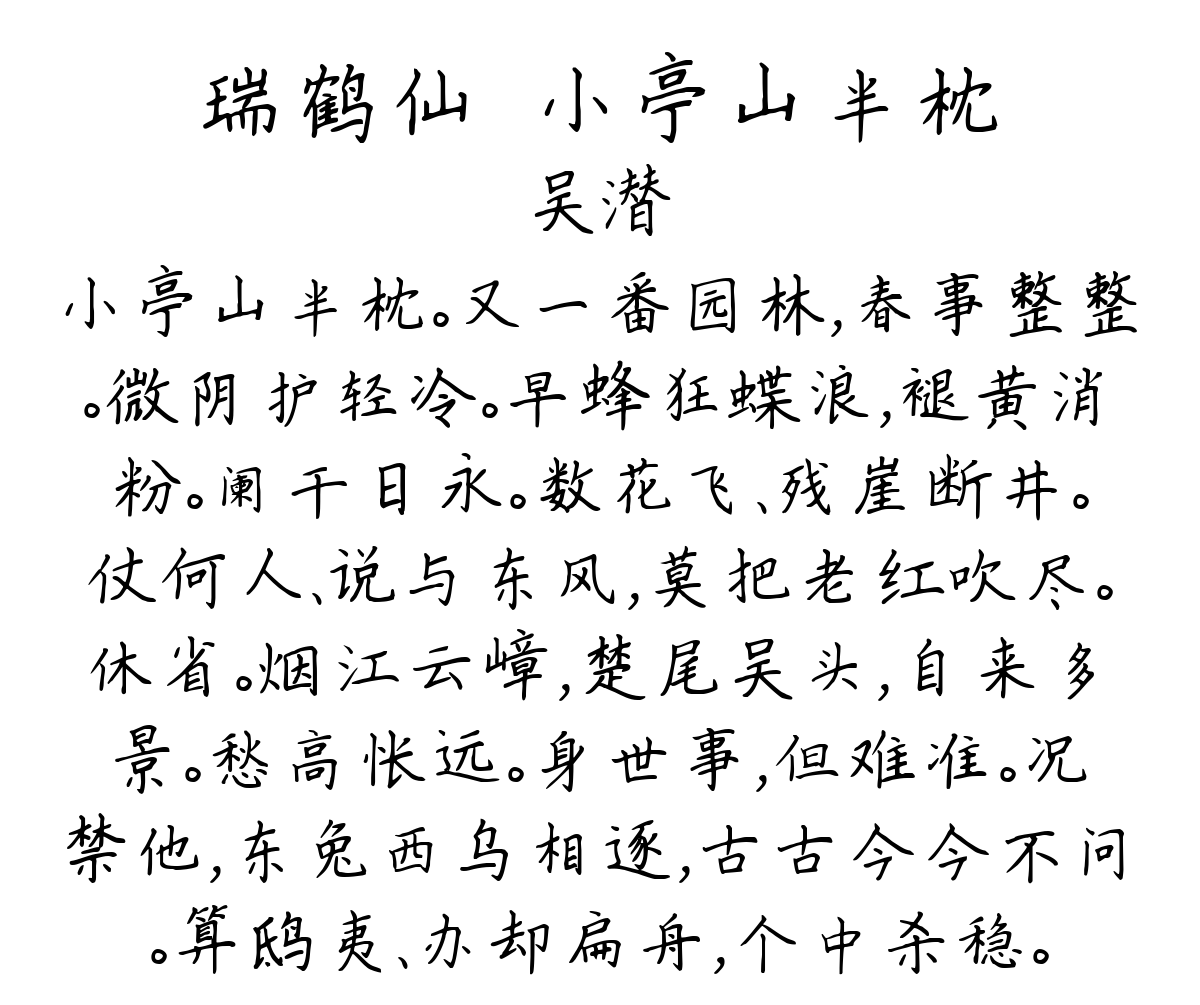 瑞鹤仙 小亭山半枕
吴潜
小亭山半枕。又一番园林,春事整整
。微阴护轻冷。早蜂狂蝶浪,褪黄消
粉。阑干日永。数花飞、残崖断井。
仗何人、说与东风,莫把老红吹尽。
休省。烟江云嶂,楚尾吴头,自来多
景。愁高怅远。身世事,但难准。况
禁他,东兔西乌相逐,古古今今不问
。算鸱夷、办却扁舟,个中杀稳。